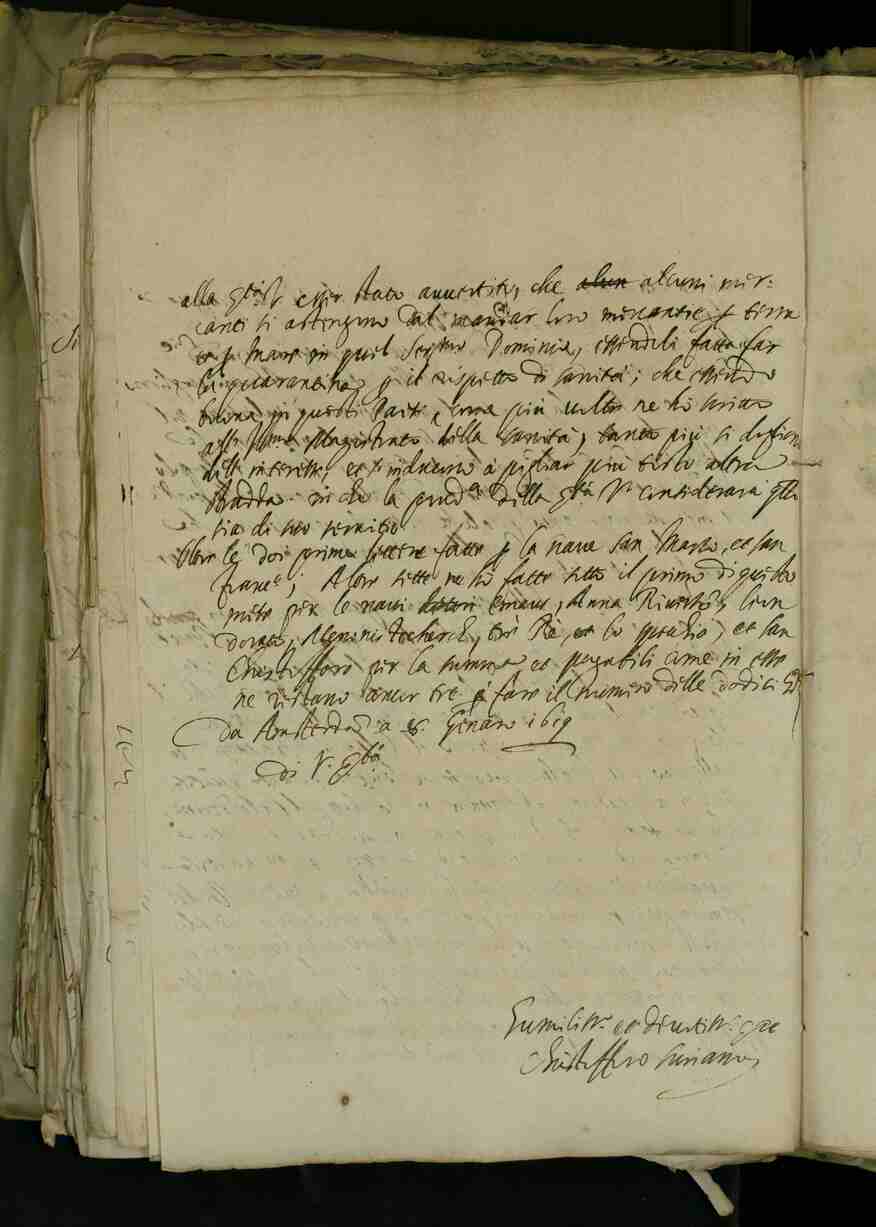 alla g.tia V.ra esser stato auuertito, che alcun alcuni mer:
canti si astengono dal mandar loro mercantie p terra
et p mare in quel Ser.mo Dominio, essendoli fatta far
la quarantena p il rispetto di sanità; che essendo
buona in questi Parti, come più uolte ne ho scritto
all' Illmo Magistrato della sanità, tanto più si dogliono
dell' interesse, et s' inducono à pigliar più tosto altra
stradda. in che la prud.a della g.tia V.ra considerarà
sia di suo seruitio
Oltre le doi prime lettere fatte p la naue San Marco, et san
Franc.o; Altre sette ne ho fatto sotto il primo di questo
mese per le naui Emaus, Anna
dorato, tre Rè, et san
Christofforo per la summa et pagabili come in esse
ne restano ancor tre p fare il numero delle dodeci
Da Amsterdã a 8. Genaro 1619
di V. g.tia
Humiliss.o et deuotiss.o ser.re
Christofforo Suriano